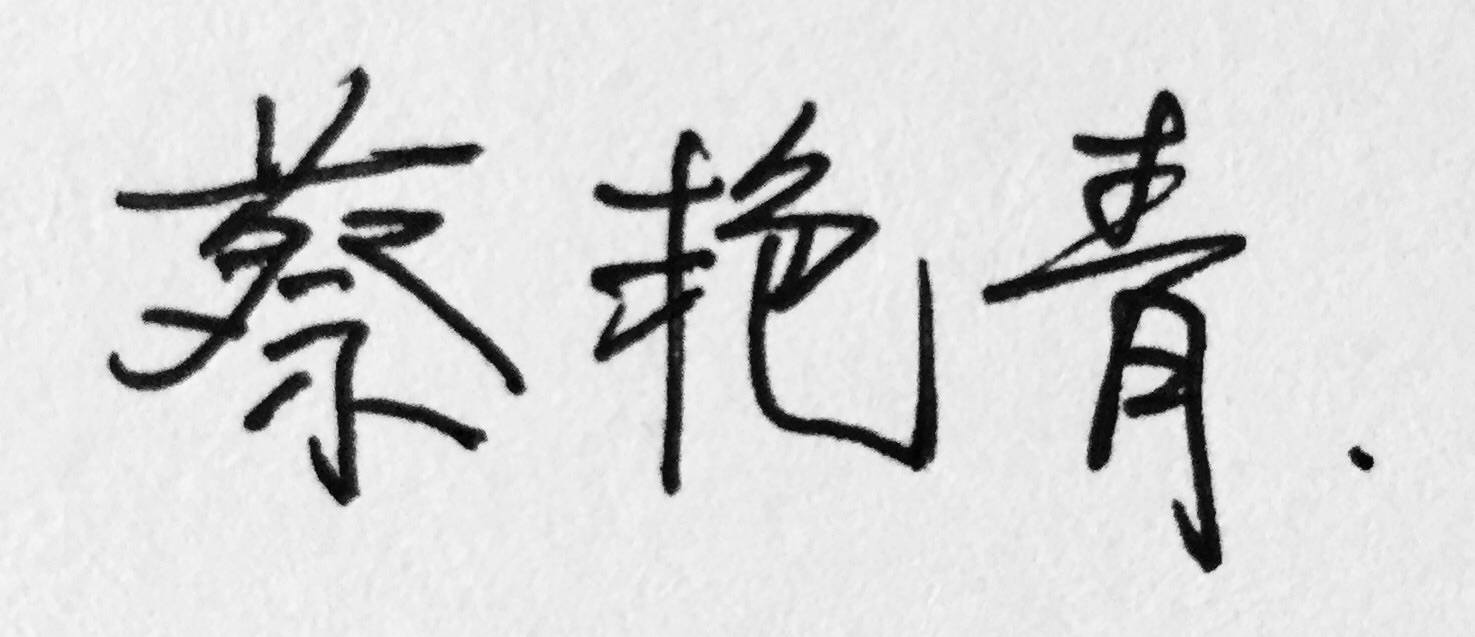 蔡艳青.